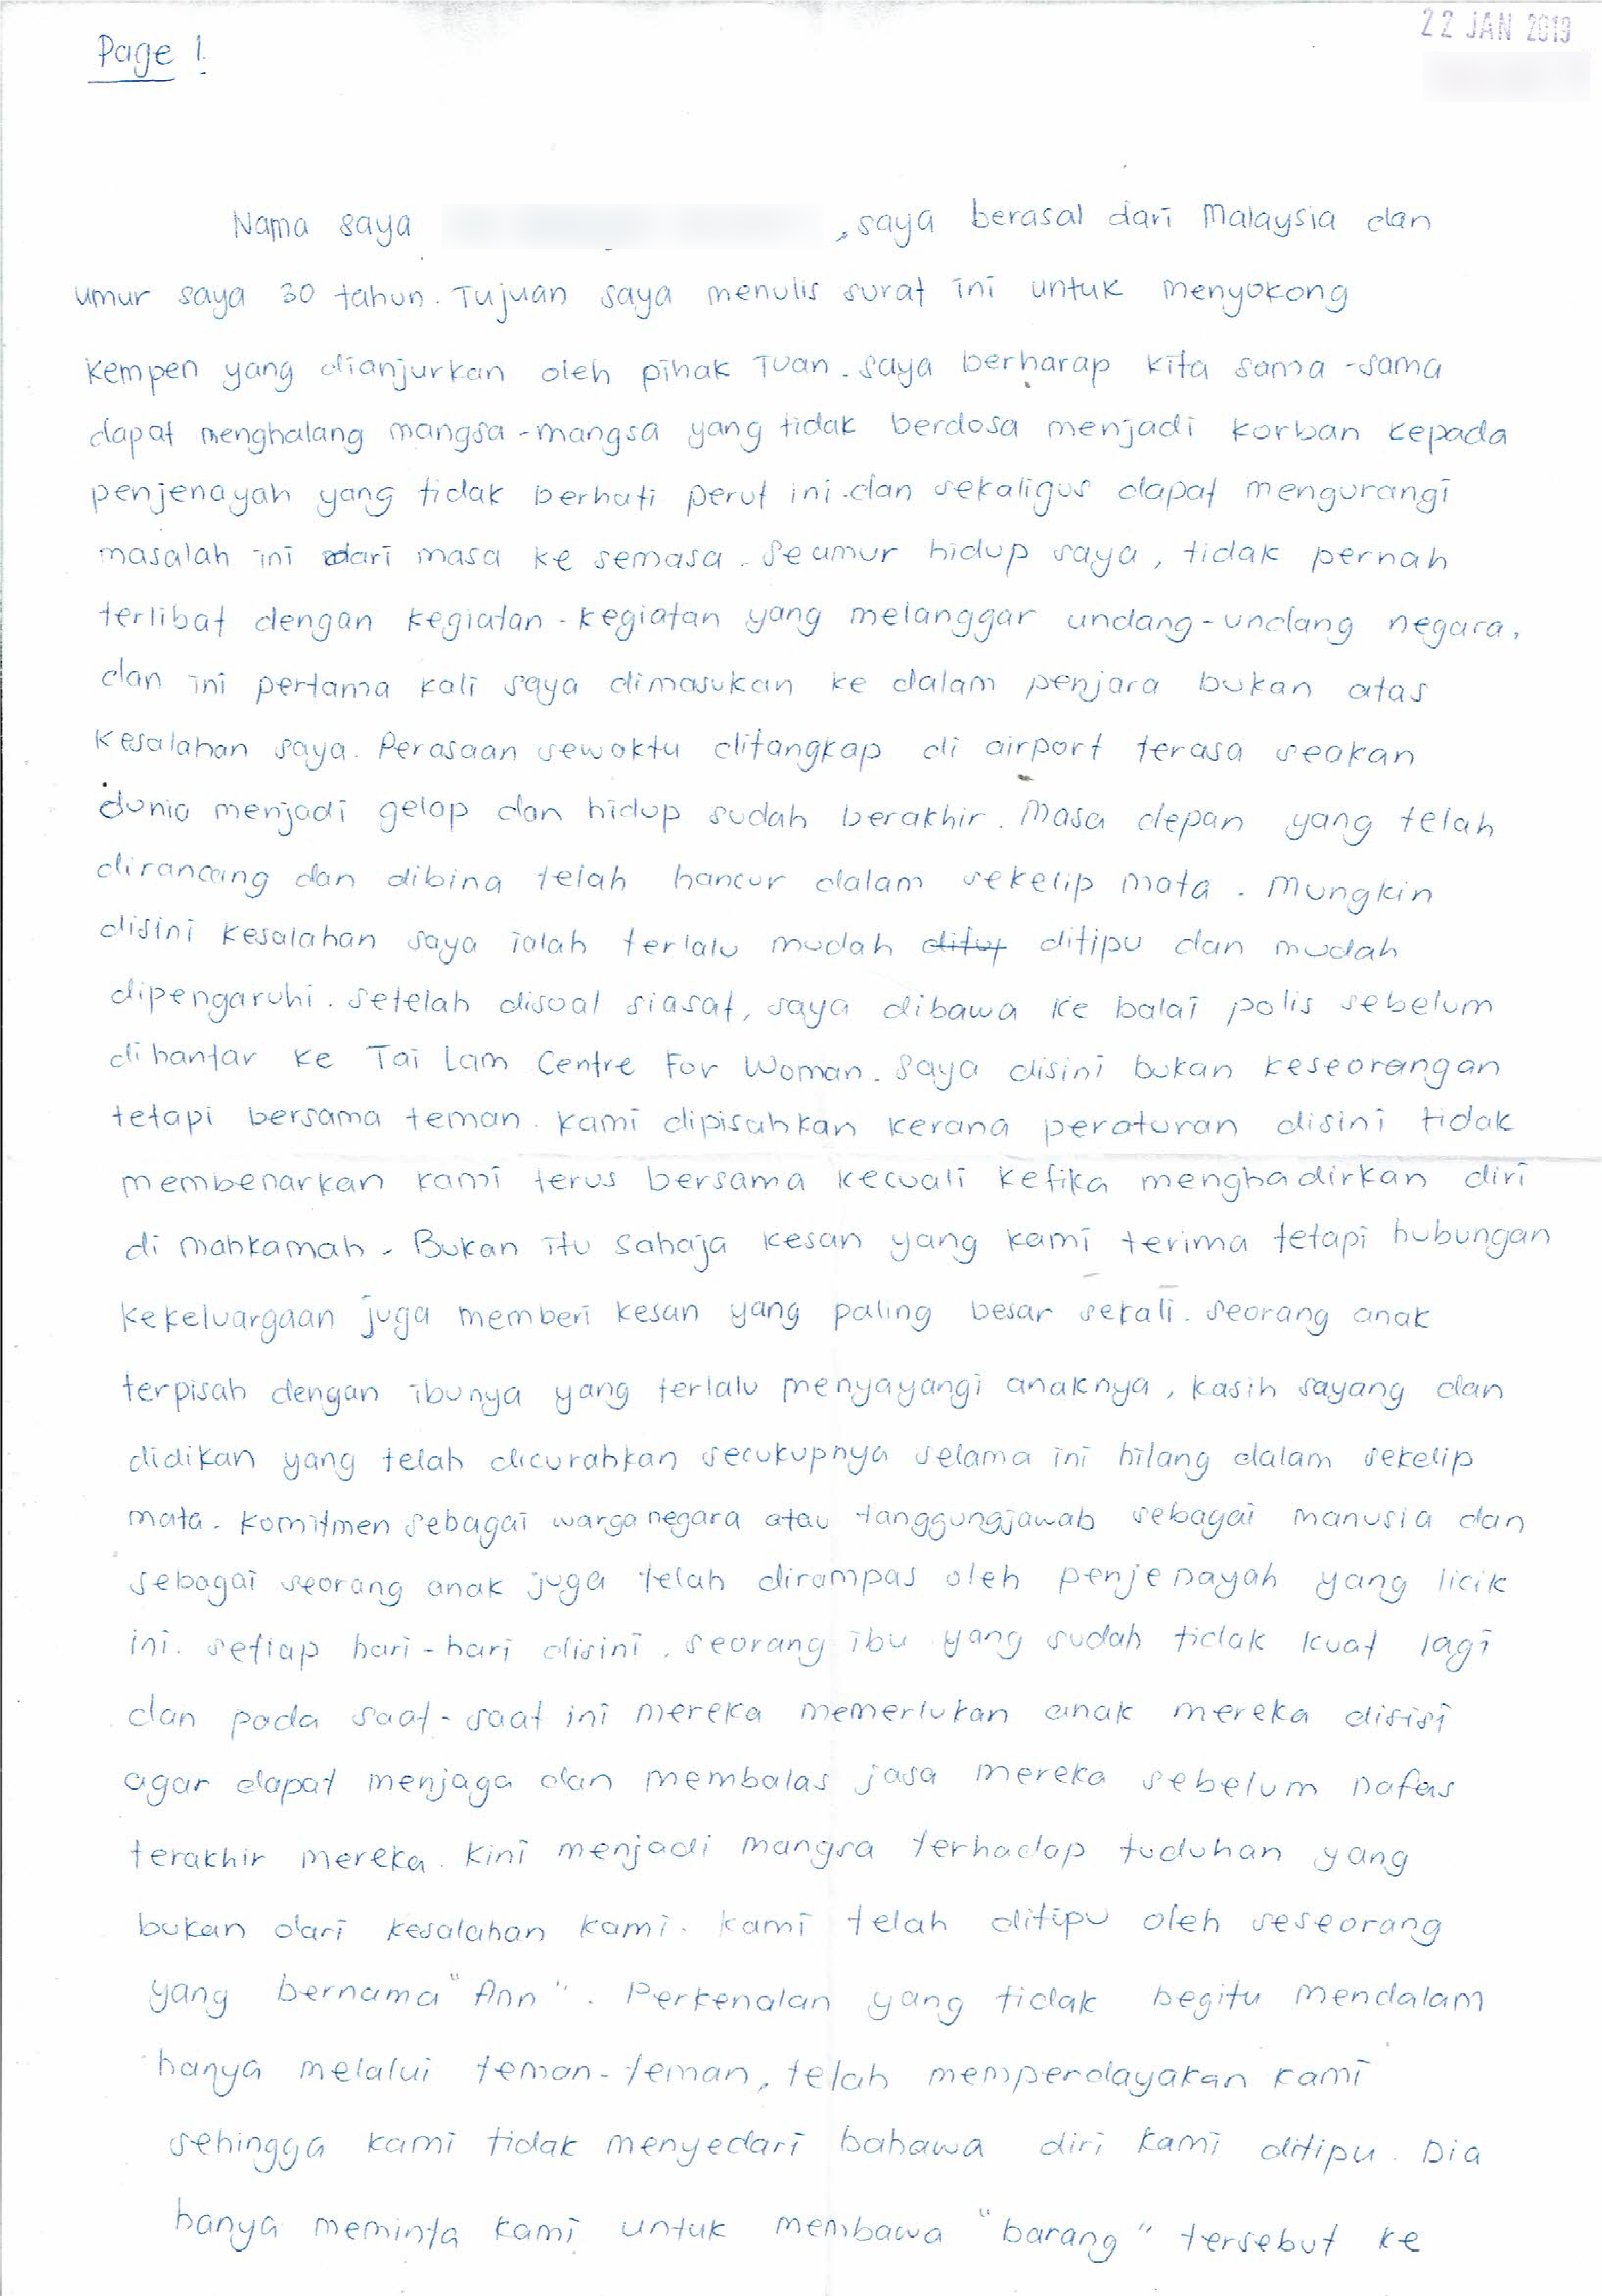 22 JAN 2019
Page 1.
Nama saya , saya berasal dari Malaysia dan
umur saya 30 tahun. Tujuan saya menulis surat ini untuk menyokong
kempen yang dianjurkan oleh pihak Tuan. saya berharap kita sama-sama
dapat menghalang mangsa-mangsa yang tidak berdosa menjadi korban kepada
penjenayah yang tidak berhati perut ini dan sekaligus dapat mengurangi
masalah ini dari masa ke semasa. Seumur hidup saya, tidak pernah
terlibat dengan kegiatan-kegiatan yang melanggar undang-undang negara,
dan ini pertama kali saya dimasukan ke dalam penjara bukan atas
kesalahan saya. Perasaan sewaktu ditangkap di airport terasa seakan
dunia menjadi gelap dan hidup sudah berakhir. Masa depan yang telah
dirancang dan dibina telah hancur dalam sekelip mata. Mungkin
disini kesalahan saya ialah terlalu mudah ditipu dan mudah
dipengaruhi. Setelah disoal siasat, saya dibawa ke balai polis sebelum
dihantar ke Tai Lam Centre For Woman. Saya disini bukan keseorangan
tetapi bersama teman. Kami dipisahkan kerana peraturan disini tidak
membenarkan kami terus bersama kecuali ketika menghadirkan diri
di mahkamah. Bukan itu sahaja kesan yang kami terima tetapi hubungan
kekeluargaan juga memberi kesan yang paling besar sekali. Seorang anak
terpisah dengan ibunya yang terlalu menyayangi anaknya, kasih sayang dan
didikan yang telah dicurahkan secukupnya selama ini hilang dalam sekelip
mata. Komitmen sebagai warga negara atau tanggungjawab sebagai manusia dan
sebagai seorang anak juga telah dirampas oleh penjenayah yang licik
ini. Setiap hari-hari disini, seorang ibu yang sudah tidak kuat lagi
dan pada saat-saat ini mereka memerlukan anak mereka disisi
agar dapat menjaga dan membalas jasa mereka sebelum nafas
terakhir mereka. Kini menjadi mangsa terhadap tuduhan yang
bukan dari kesalahan kami. Kami telah ditipu oleh seseorang
yang bernama "Ann". Perkenalan yang tidak begitu mendalam
hanya melalui teman-teman, telah memperdayakan kami
sehingga kami tidak menyedari bahawa diri kami ditipu. Dia
hanya meminta kami untuk membawa "barang" tersebut ke